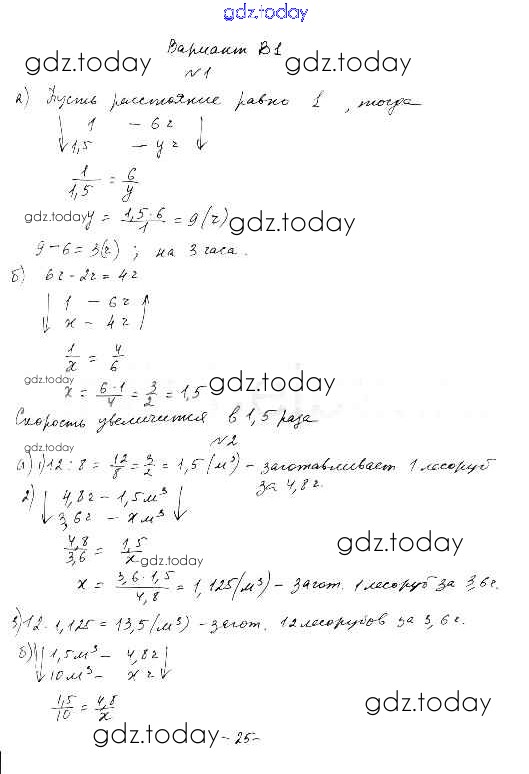 gdz.today
Вариант В1
gdz.today gdz.today
№1
а) Пусть расстояние равно 1, тогда
↓ 1 – 6 ч ↓
1,5 – y ч
1/1,5 = 6/y
gdz.today y = 1,5·6/1 = 9 (ч) gdz.today
9 – 6 = 3 (ч) ; на 3 часа.
б) 6ч - 2ч = 4ч
↓ 1 – 6ч ↑
x – 4ч
1/x = 4/6
gdz.today
x = 6·1/4 = 3/2 = 1,5 gdz.today
Скорость увеличится в 1,5 раза
№2
gdz.today
а) 1) 12 : 8 = 12/8 = 3/2 = 1,5 (м³) – заготавливает 1 лесоруб
за 4,8 ч.
2) ↓ 4,8ч – 1,5 м³ ↓
3,6ч – x м³
4,8/3,6 = 1,5/x gdz.today
gdz.today
x = 3,6·1,5/4,8 = 1,125 (м³) – загот. 1 лесоруб за 3,6 ч.
3) 12 · 1,125 = 13,5 (м³) – загот. 12 лесорубов за 3,6 ч.
б) ↓ 1,5 м³ – 4,8 ч ↓
10 м³ – x ч
1,5/10 = 4,8/x
gdz.today
gdz.today - 25 -